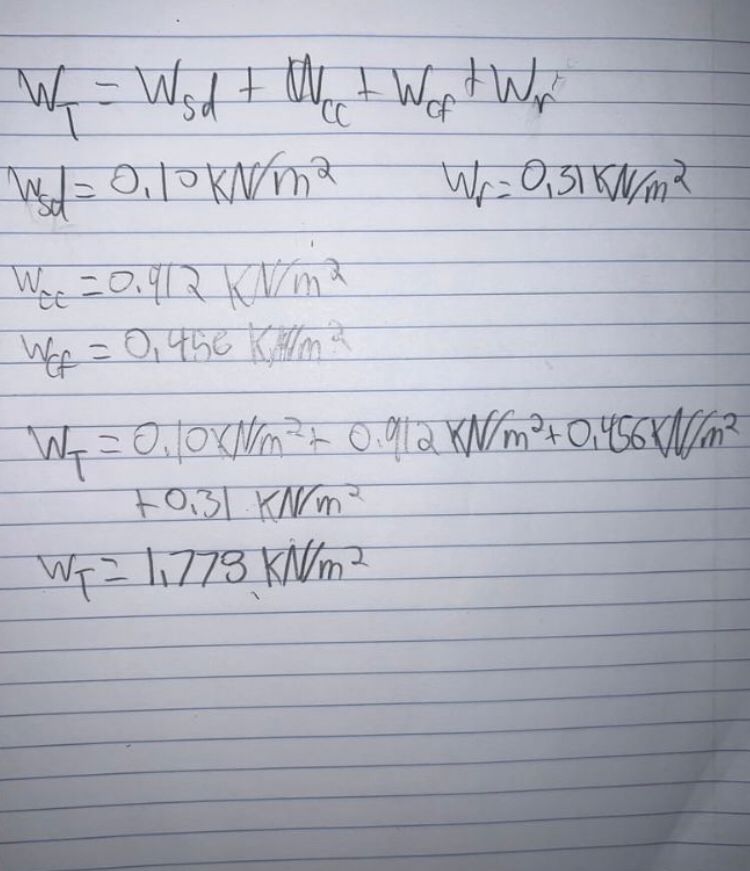 W_T = W_sd + W_cc + W_cf + W_r
W_sd = 0.10 KN/m² W_r = 0.31 KN/m²
W_cc = 0.912 KN/m²
W_cf = 0.456 KN/m²
W_T = 0.10 KN/m² + 0.912 KN/m² + 0.456 KN/m²
+ 0.31 KN/m²
W_T = 1.778 KN/m²